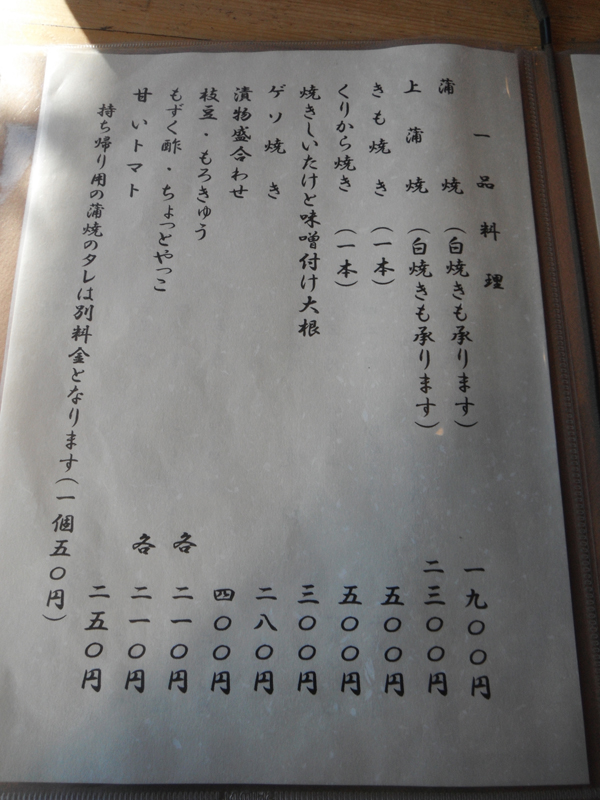 一品料理
蒲焼（白焼きも承ります） 一九〇〇円
上蒲焼（白焼きも承ります） 二三〇〇円
きも焼き（一本） 五〇〇円
くりから焼き（一本） 五〇〇円
焼きしいたけと味噌付け大根 三〇〇円
ゲソ焼き 二八〇円
漬物盛合わせ 四〇〇円
枝豆・もろきゅう 各二一〇円
もずく酢・ちょっとやっこ 各二一〇円
甘いトマト 二五〇円
持ち帰り用の蒲焼のタレは別料金となります（一個五〇円）